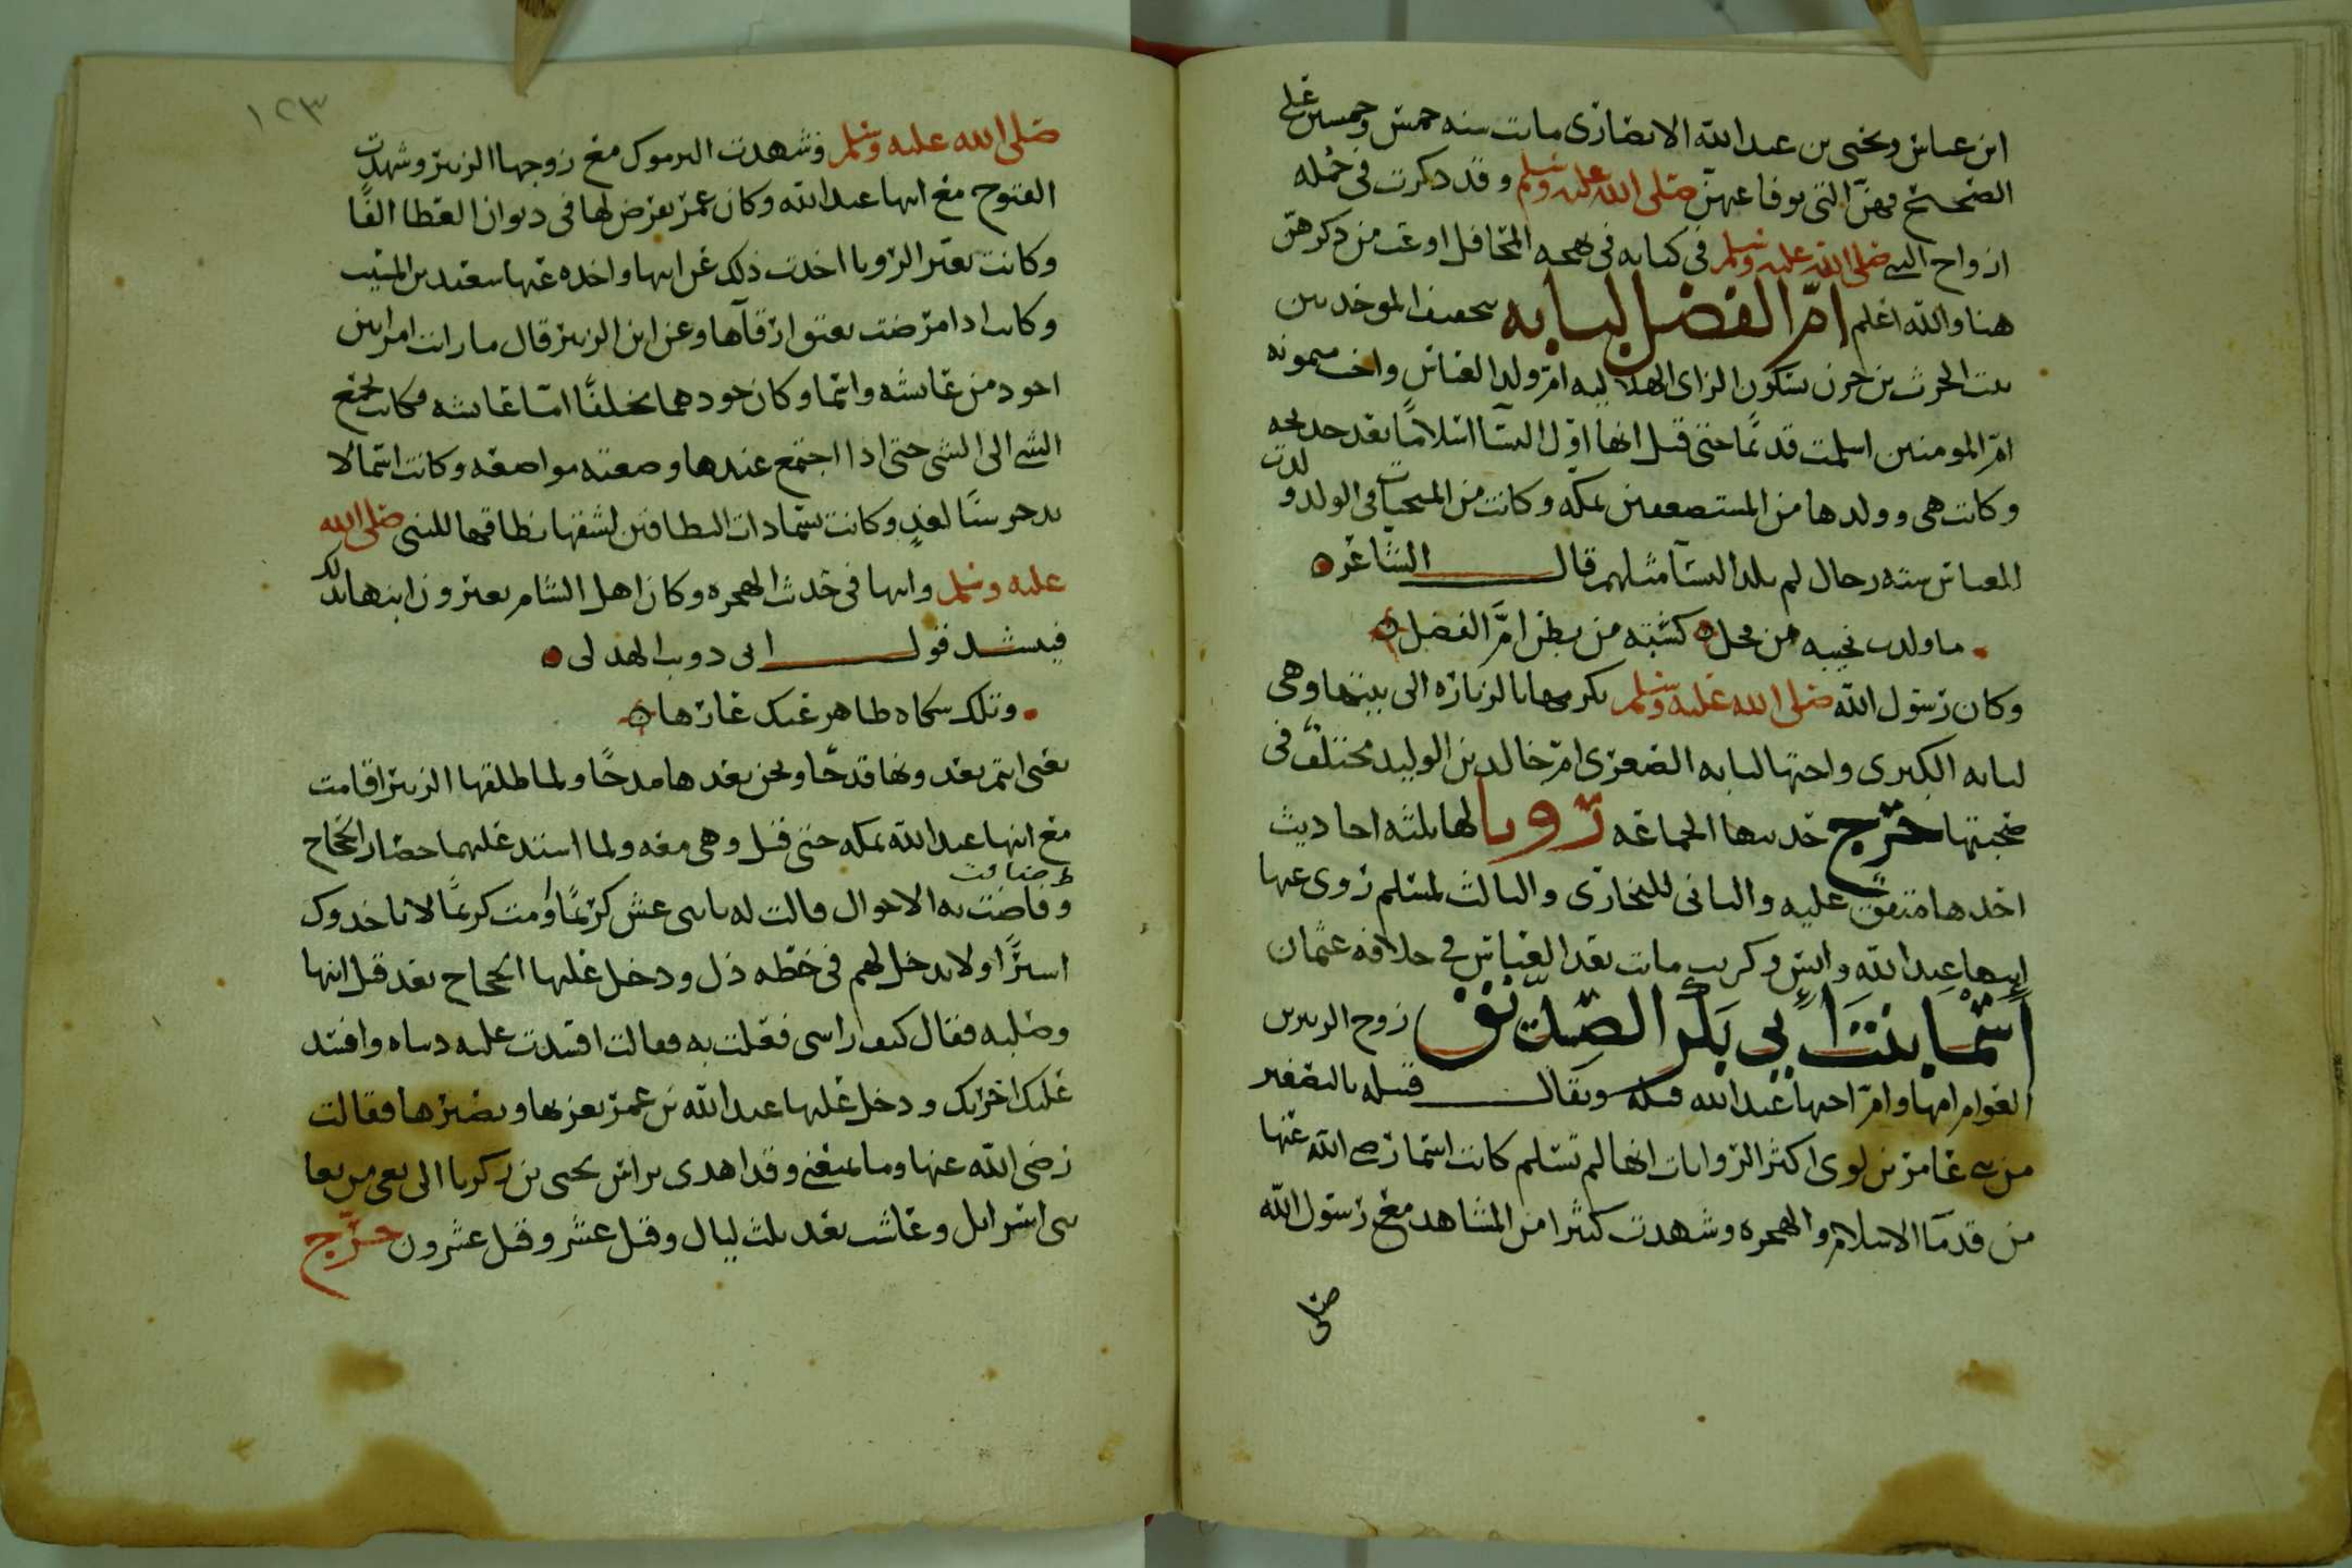 ابن عباس ويحيى بن عبد الله الانصارى مات سنه خمس وخمسين على
الصحيح فهن التى توفا عنهن صلى الله عليه وسلم وقد ذكرت فى جمله
ازواج النبي صلى الله عليه وسلم فى كتابه فى بهجه المحافل اوعب من ذكرهن
هنا والله اعلم ام الفضل لبابه بتخفيف الموحدتين
بنت الحرث بن حزن بسكون الزاى الهلاليه ام ولد العباس واخت ميمونه
ام المومنين اسلمت قديما حتى قيل انها اول النسا اسلاما بعد خديجه
وكانت هى وولدها من المستضعفين بمكه وكانت من المنجبات فى الولد ولدت
للعباس سته رجال لم يلد النسآ مثلهم قال الشاعر
ما ولدت نجيبه من فحل كسته من بطن ام الفضل
وكان رسول الله صلى الله عليه وسلم يكرمها بالزياره الى بيتها وهى
لبابه الكبرى واختها لبابه الصغرى ام خالد بن الوليد مختلف فى
صحبتها خرج حديثها الجماعه رويا لها ثلثه احاديث
احدها متفق عليه والثانى للبخارى والثالث لمسلم روى عنها
ابنها عبد الله وانس وكريب ماتت بعد العباس في خلافه عثمان
اسما بنت ابي بكر الصديق زوج الزبير بن
العوام امها وام اخيها عبد الله قيله ويقال قتيله بالتصغير
من بني عامر بن لوى اكثر الروايات انها لم تسلم كانت اسما رضي الله عنها
من قدما الاسلام والهجره وشهدت كثيرا من المشاهد مع رسول الله
صلى
١٢٣
صلى الله عليه وسلم وشهدت اليرموك مع زوجها الزبير وشهدت
الفتوح مع ابنها عبد الله وكان عمر يفرض لها فى ديوان العطا الفًا
وكانت تعبر الرويا اخذت ذلك عن ابيها واخذه عنها سعيد بن المسيب
وكانت اذا مرضت تعتق ارقآها وعن ابن الزبير قال ما رايت امراتين
اجود من عايشه واسما وكان جودهما مختلفًا اما عايشه فكانت تجمع
الشي الى الشى حتى اذا اجتمع عندها وضعته مواضعه وكانت اسما لا
تدخر شيًا لغدٍ وكانت تسما ذات النطاقين لشقها نطاقها للنبى صلى الله
عليه وسلم وابيها فى حدث الهجره وكان اهل الشام يعيرون ابنها بذلك
فينشد قول ابى ذويب الهذلى
وتلك شكاه ظاهر عنك عارها
يعنى انتم تعدونها قدحًا ونحن نعدها مدحًا ولما طلقها الزبير اقامت
مع ابنها عبد الله بمكه حتى قتل وهى معه ولما اشتد عليهما حصار الحجاج
وضاقت به الاحوال قالت له يا بنى عش كريمًا او مت كريمًا لا ياخذوك
اسيرًا ولا تدخل لهم فى خطه ذل ودخل عليها الحجاج بعد قتل ابنها
وصلبه فقال كيف رايتنى فعلت به فقالت افسدت عليه دنياه وافسد
عليك اخرتك ودخل عليها عبد الله بن عمر يعزيها ويصبرها فقالت
رضى الله عنها وما يمنعني وقد اهدى براس يحيى بن زكريا الى بغى من بغا
بنى اسرائل وعاشت بعده ثلث ليال وقيل عشر وقيل عشرون خرج